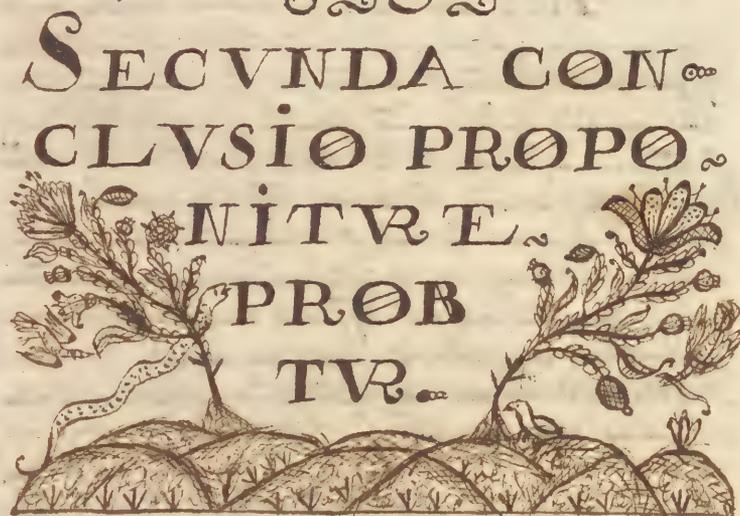 SECVNDA CON
CLVSIO PROPO
NITVR E
PROB
TVR.